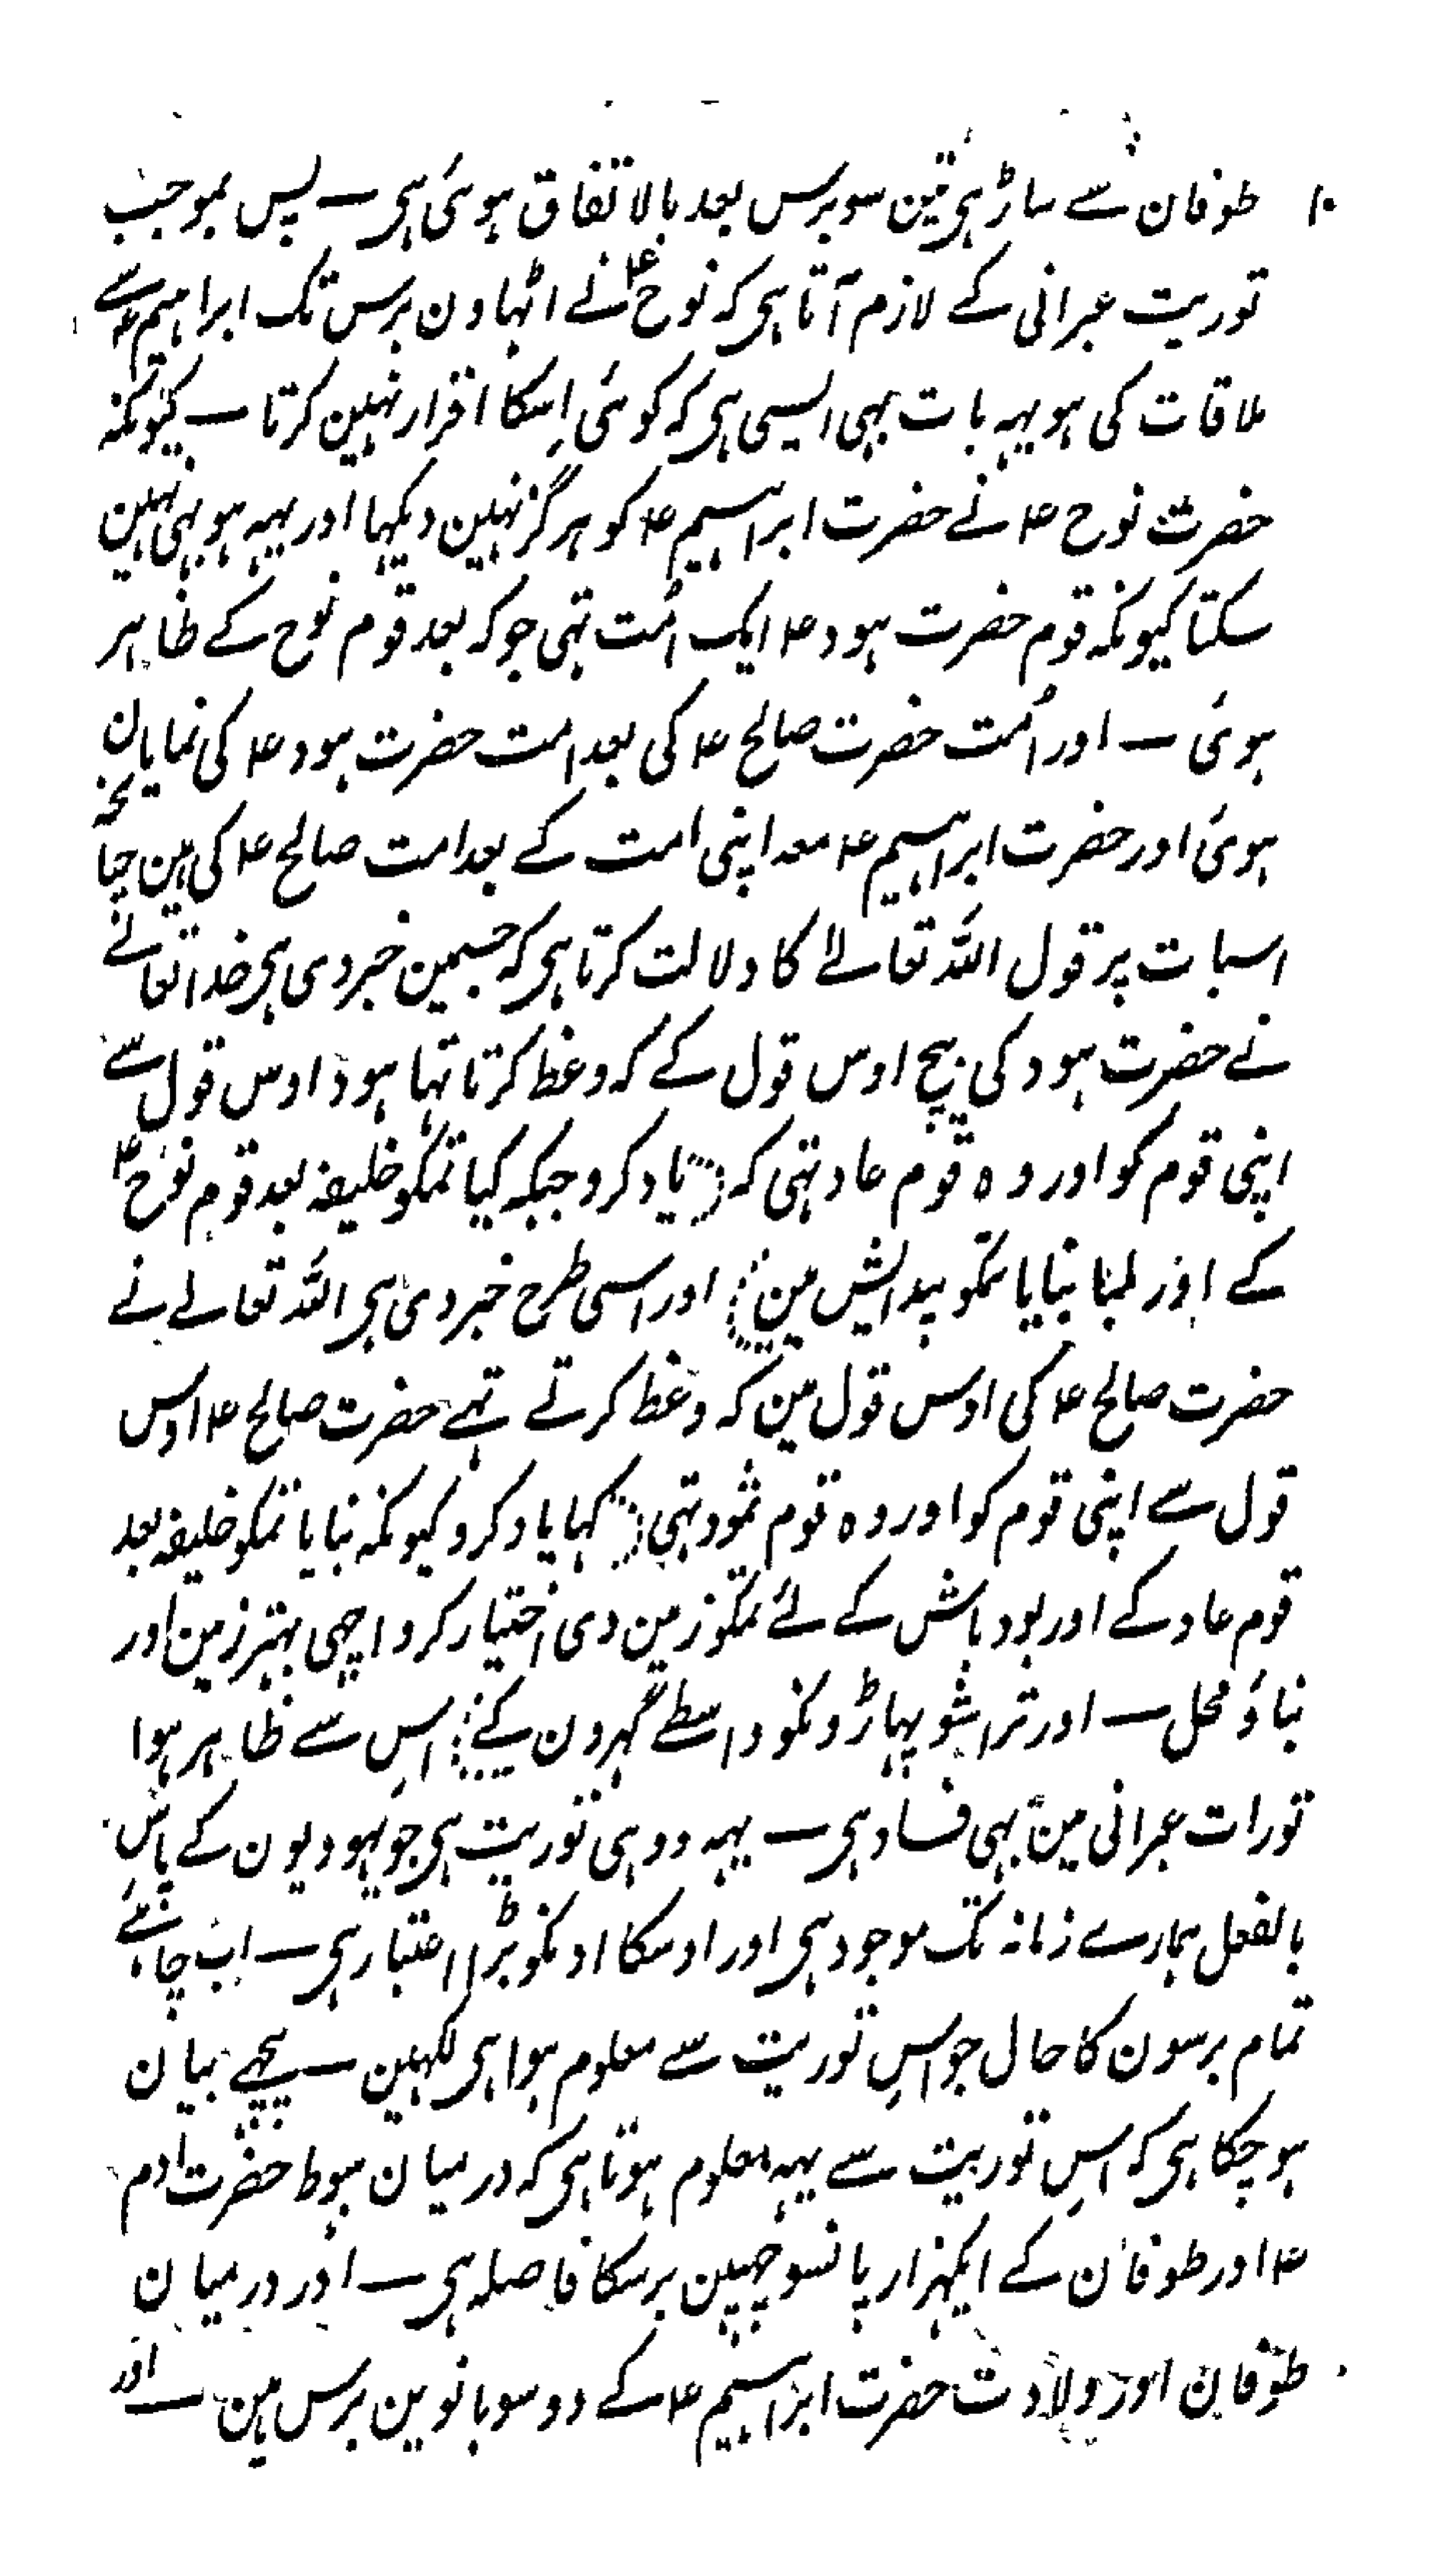 ۱۰ طوفان سے ساڑہی تین سو برس بعد بالاتفاق ہوئی ہی ــ پس بموجب
توریت عبرانی کے لازم آتا ہی کہ نوح ؑ نے اٹہاون برس تک ابراہیم ؑ سے
ملاقات کی ہو یہہ بات بہی ایسی ہی کہ کوئی اِسکا اقرار نہین کرتا ــ کیونکہ
حضرت نوح ؑ نے حضرت ابراہیم ؑ کو ہرگز نہین دیکہا اور یہہ ہو بہی نہین
سکتا کیونکہ قوم حضرت ہود ؑ ایک اُمت تہی جو کہ بعد قوم نوح کے ظاہر
ہوئی ــ اور اُمت حضرت صالح ؑ کی بعد امت حضرت ہود ؑ کی نمایان
ہوئی اور حضرت ابراہیم ؑ معہ اپنی امت کے بعد امت صالح ؑ کی ہین چنانچہ
اسبات پر قول اللہ تعالےٰ کا دلالت کرتا ہی کہ جسمین خبر دی ہی خدا تعالے
نے حضرت ہود کی بیچ اوس قول کے کہ وعظ کرتا تہا ہود اوس قول سے
اپنی قوم کو اور وہ قوم عاد تہی کہ (یاد کرو جبکہ کیا تمکو خلیفہ بعد قوم نوح ؑ
کے اور لمبا بنایا تمکو پیدایش مین) اور اسی طرح خبر دی ہی اللہ تعالے نے
حضرت صالح ؑ کی اوس قول مین کہ وعظ کرتے تہے حضرت صالح ؑ اوس
قول سے اپنی قوم کو اور وہ قوم ثمود تہی (کہا یاد کرو کیونکہ بنایا تمکو خلیفہ بعد
قوم عاد کے اور بود باش کے لئے تمکو زمین دی اختیار کرو اچہی بہتر زمین اور
بناؤ محل ــ اور تراشو پہاڑونکو واسطے گہرون کے) اس سے ظاہر ہوا
تورات عبرانی مین بہی فساد ہی ــ یہہ وہ ہی توریت ہی جو یہودیون کے پاس
بالفعل ہمارے زمانہ تک موجود ہی اور اوسکا اونکو بڑا اعتبار ہی ــ اب چاہئے
تمام برسون کا حال جو اس توریت سے معلوم ہوا ہی لکہین ــ پیچہے بیان
ہو چکا ہی کہ اس توریت سے یہہ معلوم ہوتا ہی کہ درمیان ہبوط حضرت آدم
ؑ اور طوفان کے ایکہزار پانسو چہپن برسکا فاصلہ ہی ــ اور درمیان
طوفان اور ولادت حضرت ابراہیم ؑ کے دو سو بانوین برس ہین ــ اور